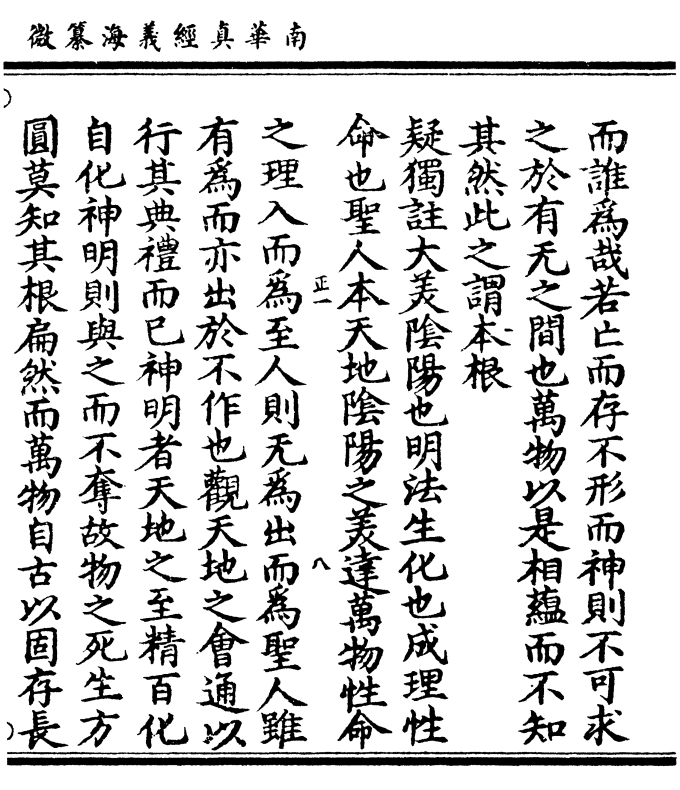 南華真經義海纂微
而誰爲哉若亡而存不形而神則不可求
之於有无之間也萬物以是相蘊而不知
其然此之謂本根
疑獨註大美陰陽也明法生化也成理性
命也聖人本天地陰陽之美達萬物性命
正一
八
之理入而爲至人則无爲出而爲聖人雖
有爲而亦出於不作也觀天地之會通以
行其典禮而已神明者天地之至精百化
自化神明則與之而不奪故物之死生方
圓莫知其根扁然而萬物自古以固存長